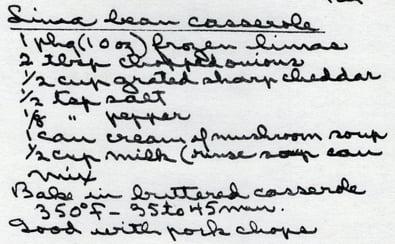 Lima bean casserole
1 pkg (10 oz) frozen limas
2 tbsp chopped onions
1/2 cup grated sharp cheddar
1/2 tsp salt
1/8 " pepper
1 can cream of mushroom soup
1/2 cup milk (rinse soup can
mix
Bake in buttered casserole
350°F - 35 to 45 min.
Good with pork chops